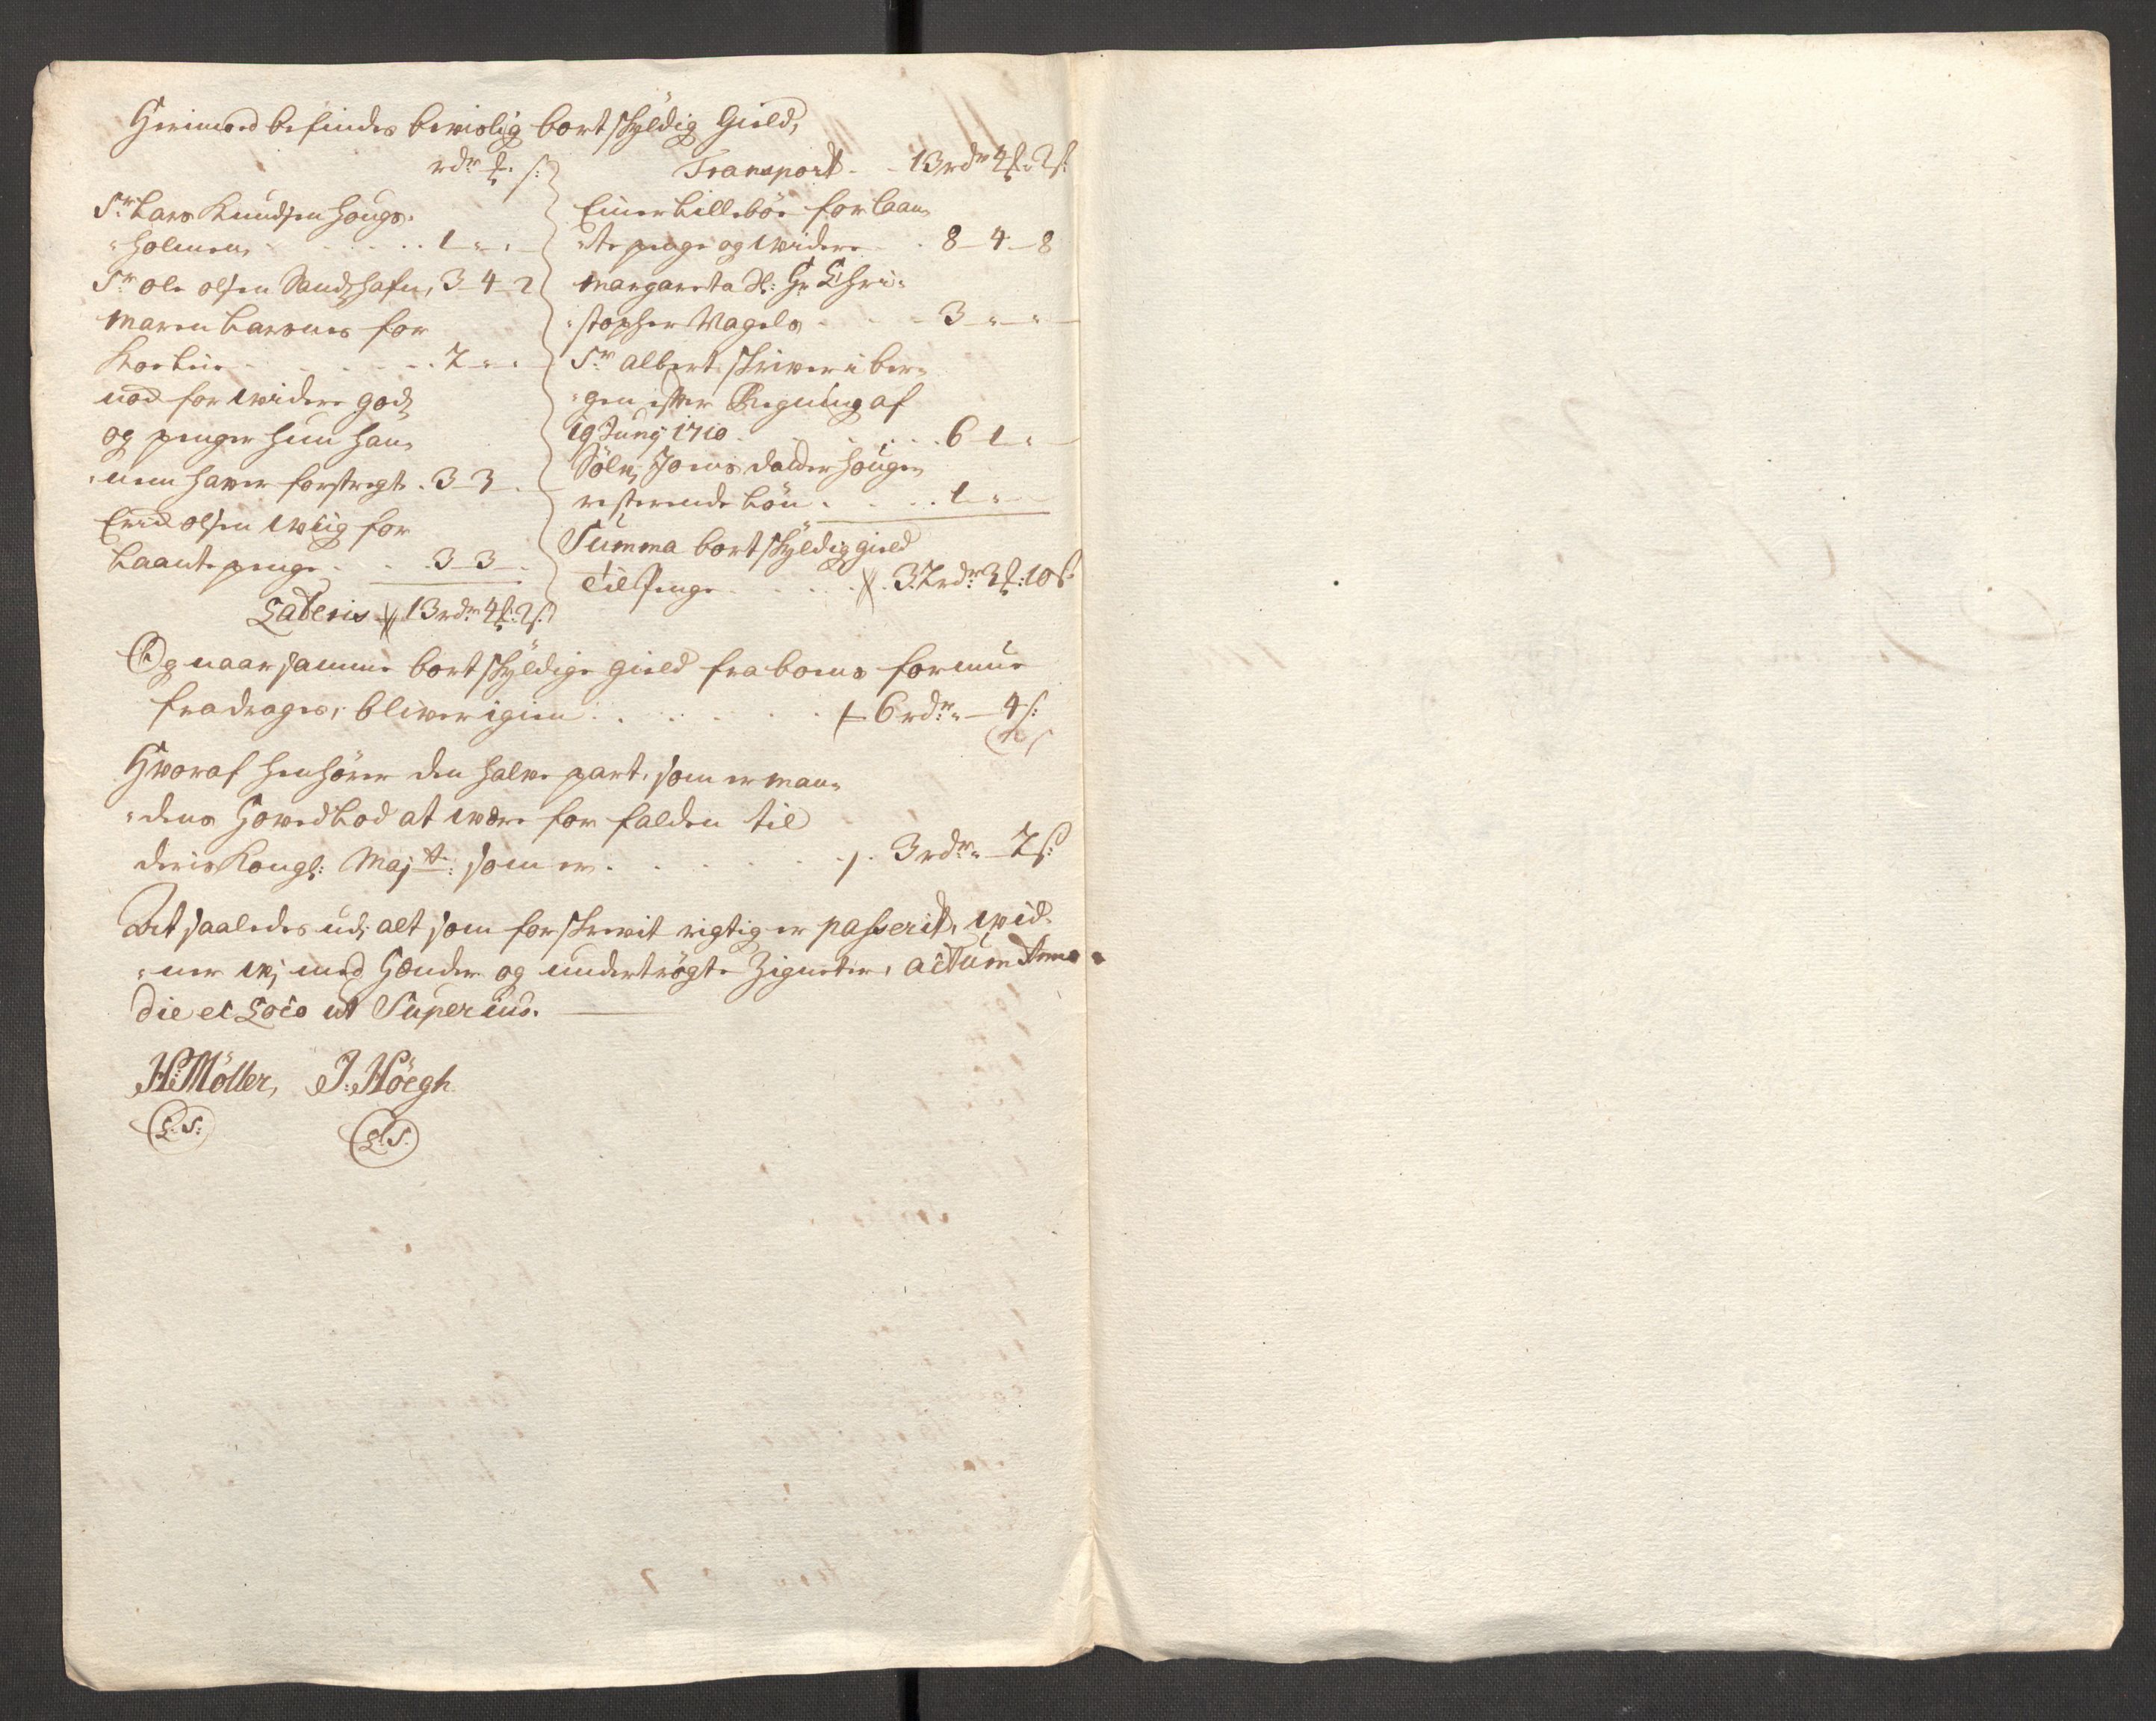 Herimod befindes bevislig bortskÿldig Gield,
rdr ₰. s:
Sr Lars Knudsen Hougs-
"holmen, . . . . . 1 - " - "
Sr ole olsen Sandshafn, 3 - 4 - 2
Maren Larsnes for
. . . . . 2 - " - "
nod for widere godz
og penger hun han-
"nem haver forstragt . 3 - 3 -
Erich olsen wiig for
Laante penge . . . 3 - 3 -
Lateris 13 rdr 4 ₰: 2 s:
Transport - - 13 rdr 4 ₰: 2 s:
Einer Lilleböe for laan-
"te penge og widere . . 8 - 4 - 8
Margareta Sl: Hr Chri-
"stopher Nagels . . . 3 - " - "
Sr albert skriver i ber-
"gen efter Regning af
19 Junÿ 1710 . . . . 6 - 1 - "
Sölv Joens dalderhougen
resterende Lön . . . . 1 - " -
Summa bortskÿldig gield
Til Penge . . . . 32 rdr 3 ₰: 10 s:
Og naar samme bortskÿldige gield fra boens formue
fradrages, bliver igien . . . . . 6 rdr " - 4 s:
Hvoraf henhörer den halve part, som er man-
"dens Hovedlod at være forfalden til
deris Kongl: Majtt: som er . . . . . 3 rdr " - 2 s:
Det saaledes udj alt som forskrevit rigtig er passerit, wid-
"ner wj med Hænder og undertrögte Zigneter, actum Anno
die et Loco ut Superius.
H: Möller, J: Höegh
L: S: L: S: